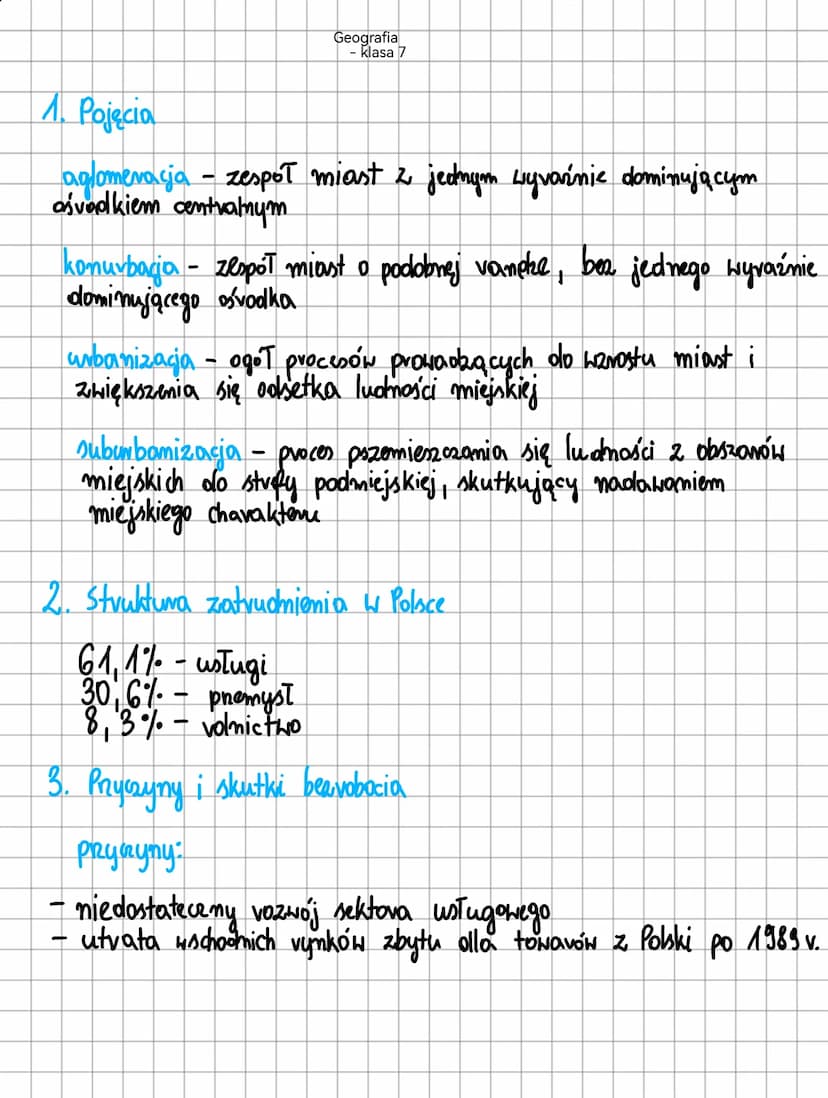 Geografia
- klasa 7
1. Pojęcia
aglomeracja - zespół miast z jednym wyraźnie dominującym
ośrodkiem centralnym
konurbacja - zespół miast o podobnej randze, bez jednego wyraźnie
dominującego ośrodka
urbanizacja - ogół procesów prowadzących do wzrostu miast i
zwiększenia się odsetka ludności miejskiej
suburbanizacja - proces pszemieszczania się ludności z obszarów
miejskich do strefy podmiejskiej, skutkujący nadawaniem
miejskiego charakteru
2. Struktura zatrudnienia w Polsce
61,1% - usługi
30,6% - przemysł
8,3% - rolnictwo
3. Przyczyny i skutki bezrobocia
przyczyny:
- niedostateczny rozwój sektora usługowego
- utrata wschodnich rynków zbytu dla towarów z Polski po 1989 r.